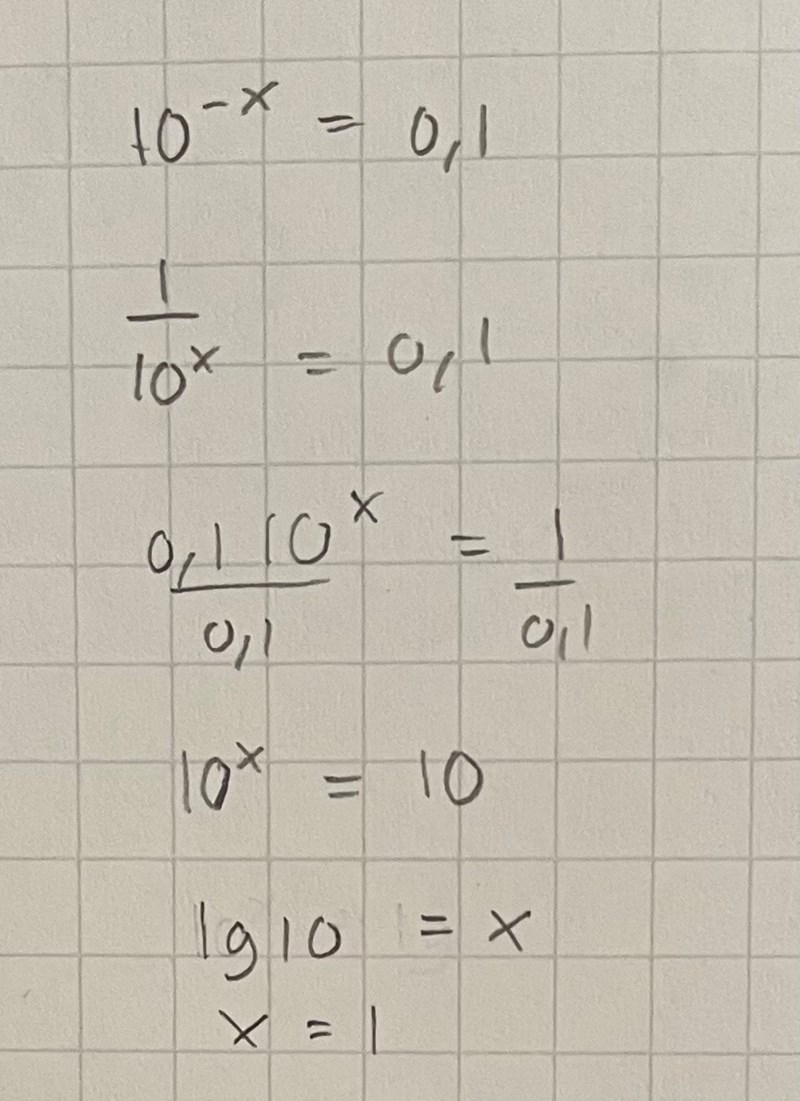 10⁻ˣ = 0,1
1/10ˣ = 0,1
0,1 10ˣ/0,1 = 1/0,1
10ˣ = 10
lg 10 = x
x = 1